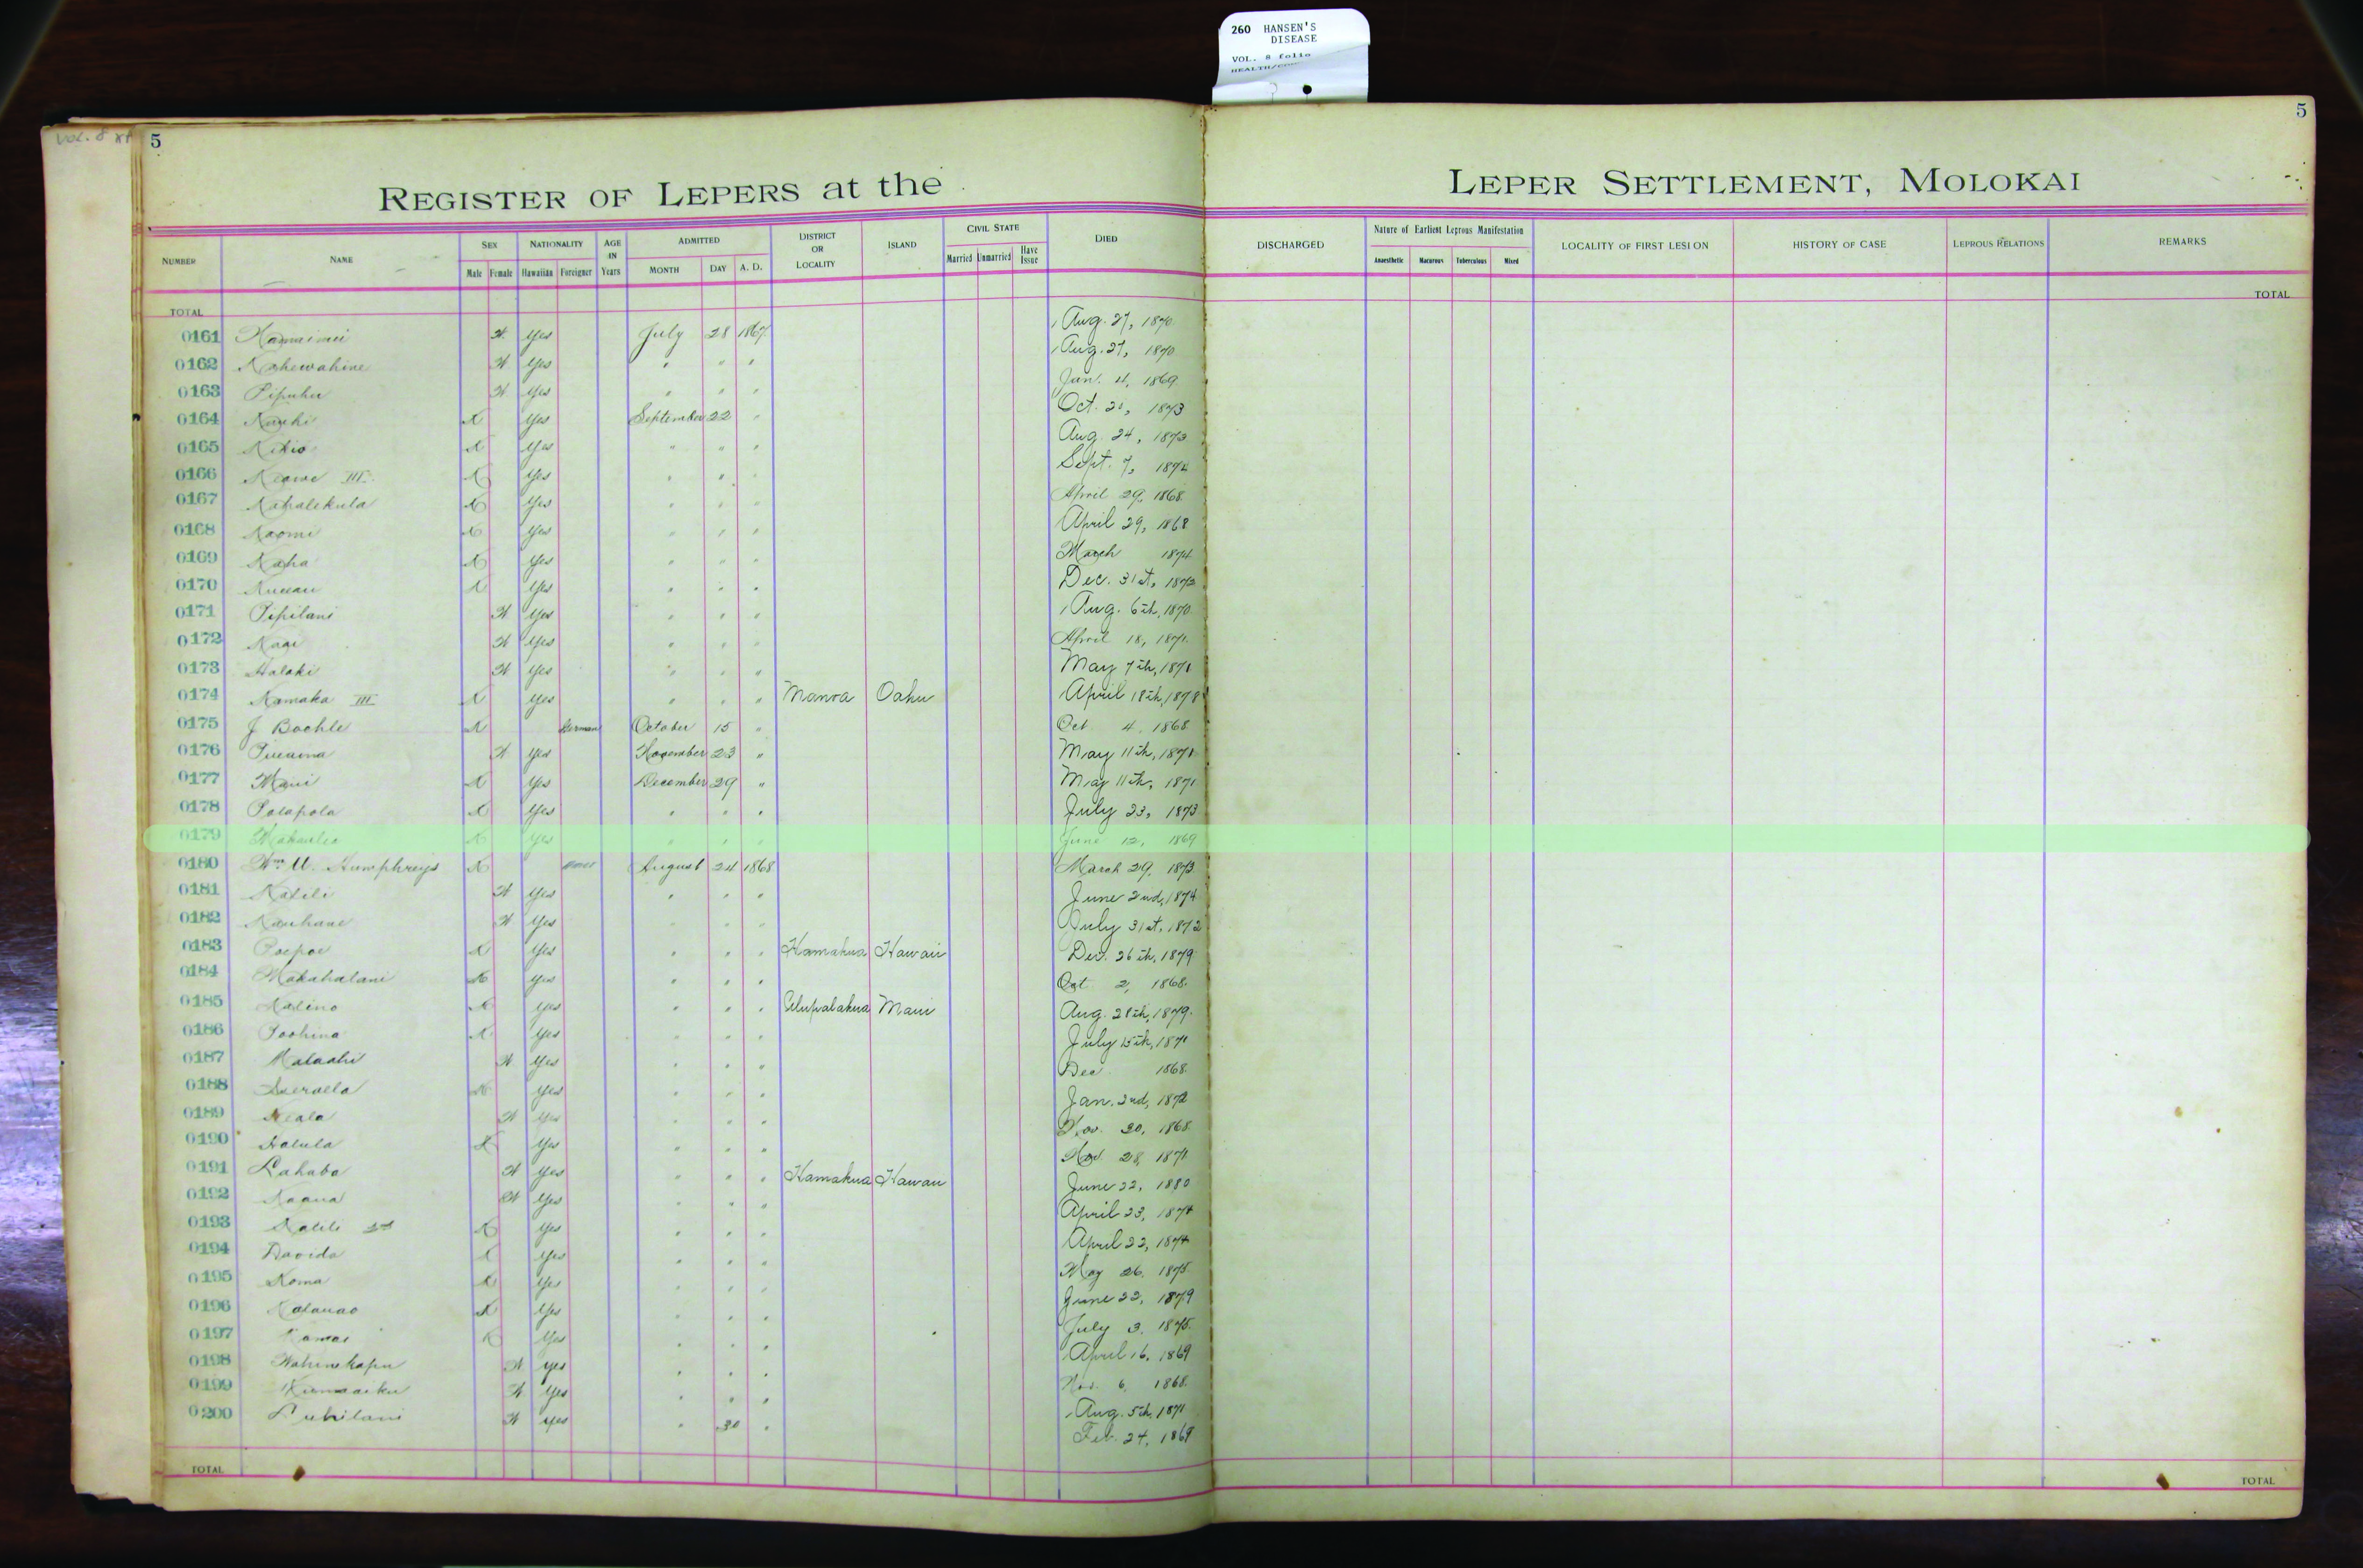 260 HANSEN'S
DISEASE
VOL. 8 folio
VOL. 8
5
5
REGISTER OF LEPERS at the LEPER SETTLEMENT, MOLOKAI
NUMBER NAME SEX Male Female NATIONALITY Hawaiian Foreigner AGE IN Years ADMITTED MONTH DAY A. D. DISTRICT OR LOCALITY ISLAND CIVIL STATE Married Unmarried Have Issue DIED DISCHARGED Nature of Earliest Leprous Manifestation Anaesthetic Macurous Tuberculous Mixed LOCALITY OF FIRST LESION HISTORY OF CASE LEPROUS RELATIONS REMARKS
TOTAL TOTAL
0161 Yes July 28 1867 Aug. 27, 1870
0162 Kahewahine Yes " " " Aug. 27, 1870
0163 Pipuhu Yes " " " Jan. 4, 1869
0164 Yes September 22 " Oct. 21, 1873
0165 Kikio Yes " " " Aug. 24, 1873
0166 Keawe III Yes " " " Sept. 7, 1874
0167 Kahalekula Yes " " " April 29, 1868
0168 Naomi Yes " " " April 29, 1868
0169 Kaha Yes " " " March 1874
0170 Yes " " " Dec. 31st, 1873
0171 Pipilani Yes " " " Aug. 6th, 1870
0172 Yes " " " April 18, 1871
0173 Halaki Yes " " " May 7th, 1871
0174 Kamaka III Yes " " " Manoa Oahu April 18th, 1878
0175 J Bochle German October 15 " Oct 4, 1868
0176 Yes November 23 " May 11th, 1871
0177 Maui Yes December 29 " May 11th, 1871
0178 Polapola Yes " " " July 23, 1873
0179 Makaulio Yes " " " June 12, 1869
0180 Wm U. Humphreys August 24 1868 March 29, 1873
0181 Kalili Yes " " " June 2nd, 1874
0182 Kauhane Yes " " " July 31st, 1872
0183 Poepoe Yes " " " Hamakua Hawaii Dec. 26th, 1879
0184 Makahalani Yes " " " Oct 2, 1868
0185 Kalino Yes " " " Ulupalakua Maui Aug. 28th, 1879
0186 Poohina Yes " " " July 15th, 1871
0187 Malaahi Yes " " " Dec 1868
0188 Yes " " " Jan. 2nd, 1872
0189 Keala Yes " " " Nov. 30, 1868
0190 Halula Yes " " " Nov. 28, 1871
0191 Lahaba Yes " " " Hamakua Hawaii June 22, 1880
0192 Kaaua Yes " " " April 23, 1874
0193 Kalili 2nd Yes " " " April 22, 1874
0194 Davida Yes " " " May 26, 1875
0195 Koma Yes " " " June 22, 1879
0196 Kalauao Yes " " " July 3, 1875
0197 Kamai Yes " " " April 16, 1869
0198 Wahinekapu Yes " " " Nov. 6, 1868
0199 Kumaaiku Yes " " " Aug. 5th, 1871
0200 Luhilani Yes " 30 " Feb. 24, 1869
TOTAL TOTAL